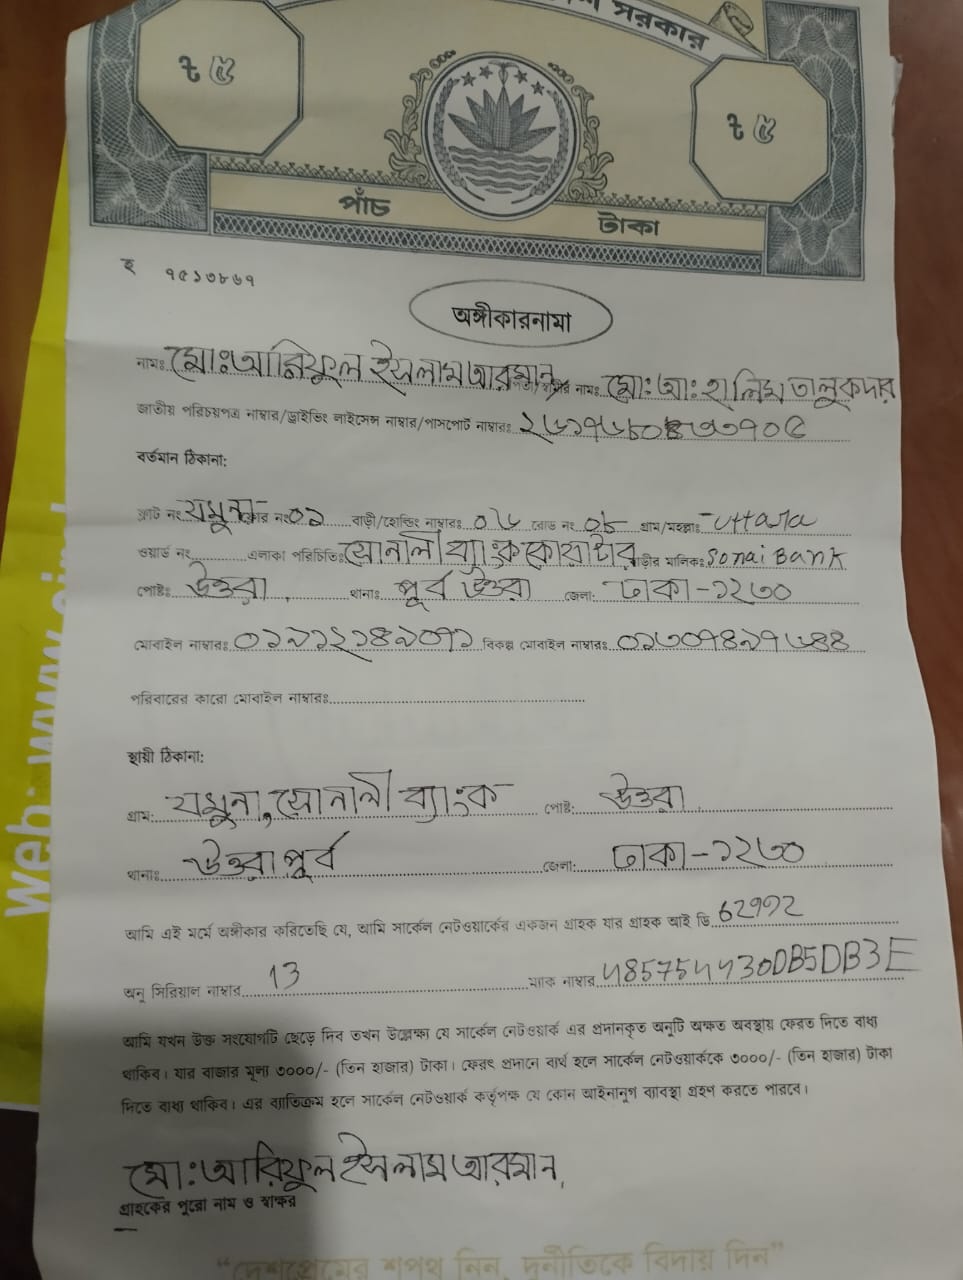 সরকার
৳ ৫ ৳ ৫
পাঁচ টাকা
হ ৭৫১৩৮৬৭
অঙ্গীকারনামা
নামঃ মো: আরিফুল ইসলাম আরমান, নামঃ মো: আ: হালিম তালুকদার
জাতীয় পরিচয়পত্র নাম্বার/ড্রাইভিং লাইসেন্স নাম্বার/পাসপোর্ট নাম্বারঃ
বর্তমান ঠিকানা:
ফ্লাট নং যমুনা ফ্লোর নং ০১ বাড়ী/হোল্ডিং নাম্বারঃ ০৬ রোড নং ০৮ গ্রাম/মহল্লাঃ Uttara
ওয়ার্ড নং এলাকা পরিচিতিঃ সোনালী ব্যাংক কোয়ার্টার বাড়ীর মালিকঃ Sonai Bank
পোষ্টঃ উত্তরা থানাঃ পূর্ব উত্তরা জেলা: ঢাকা-১২৩০
মোবাইল নাম্বারঃ ০১৯১২১৪৯০৭১ বিকল্প মোবাইল নাম্বারঃ ০১৩০৭৪৯৭৬৪৪
পরিবারের কারো মোবাইল নাম্বারঃ
স্থায়ী ঠিকানা:
গ্রাম: যমুনা, সোনালী ব্যাংক পোষ্ট: উত্তরা
থানাঃ উত্তরা পূর্ব জেলা: ঢাকা-১২৩০
আমি এই মর্মে অঙ্গীকার করিতেছি যে, আমি সার্কেল নেটওয়ার্কের একজন গ্রাহক যার গ্রাহক আই ডি
অনু সিরিয়াল নাম্বার 13 ম্যাক নাম্বার 485754430DB5DB3E
আমি যখন উক্ত সংযোগটি ছেড়ে দিব তখন উল্লেক্ষা যে সার্কেল নেটওয়ার্ক এর প্রদানকৃত অনুটি অক্ষত অবস্থায় ফেরত দিতে বাধ্য
থাকিব। যার বাজার মূল্য ৩০০০/- (তিন হাজার) টাকা। ফেরৎ প্রদানে ব্যর্থ হলে সার্কেল নেটওয়ার্ককে ৩০০০/- (তিন হাজার) টাকা
দিতে বাধ্য থাকিব। এর ব্যতিক্রম হলে সার্কেল নেটওয়ার্ক কর্তৃপক্ষ যে কোন আইনানুগ ব্যাবস্থা গ্রহণ করতে পারবে।
মো: আরিফুল ইসলাম আরমান,
গ্রাহকের পুরো নাম ও স্বাক্ষর
“দেশপ্রেমের শপথ নিন, দুর্নীতিকে বিদায় দিন”